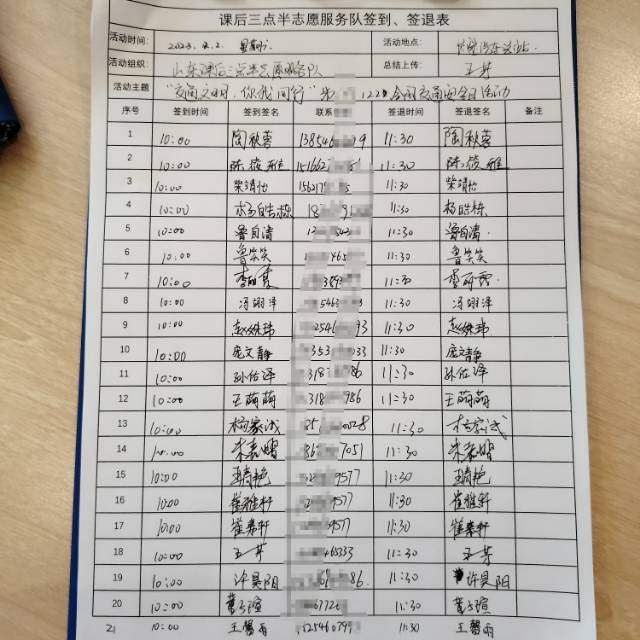 课后三点半志愿服务队签到、签退表
活动时间: 2023.12.2. 星期六 活动地点:
活动组织: 山东课后三点半志愿服务队 总结上传: 王芳
活动主题 "交通文明,你我同行" 122全国交通安全日活动
序号 签到时间 签到签名 联系 签退时间 签退签名 备注
1 10:00 陶秋蓉 138546 9 11:30 陶秋蓉
2 10:00 陈筱雅 151662 11:30 陈筱雅
3 10:00 柴靖怡 15621 11:30 柴靖怡
4 10:00 杨皓栋 18 11:30 杨皓栋
5 10:00 鲁自清 11:30 鲁自清
6 10:00 鲁笑笑 465 11:30 鲁笑笑
7 10:00 11:30
8 10:00 冯翊洋 11:30 冯翊洋
9 10:00 赵姝玮 2546 93 11:30 赵姝玮
10 10:00 庞文静 353 033 11:30 庞文静
11 10:00 孙佑泽 318 986 11:30 孙佑泽
12 10:00 王萌萌 318 986 11:30 王萌萌
13 10:00 杨家诚 028 11:30 杨家诚
14 10:00 7051 11:30
15 10:00 9577 11:30
16 10:00 崔雅轩 9577 11:30 崔雅轩
17 10:00 崔素轩 9577 11:30 崔素轩
18 10:00 王芳 465333 11:30 王芳
19 10:00 许昊阳 86 11:30 许昊阳
20 10:00 6772 11:30
21 10:00 王馨雨 11:30 王馨雨